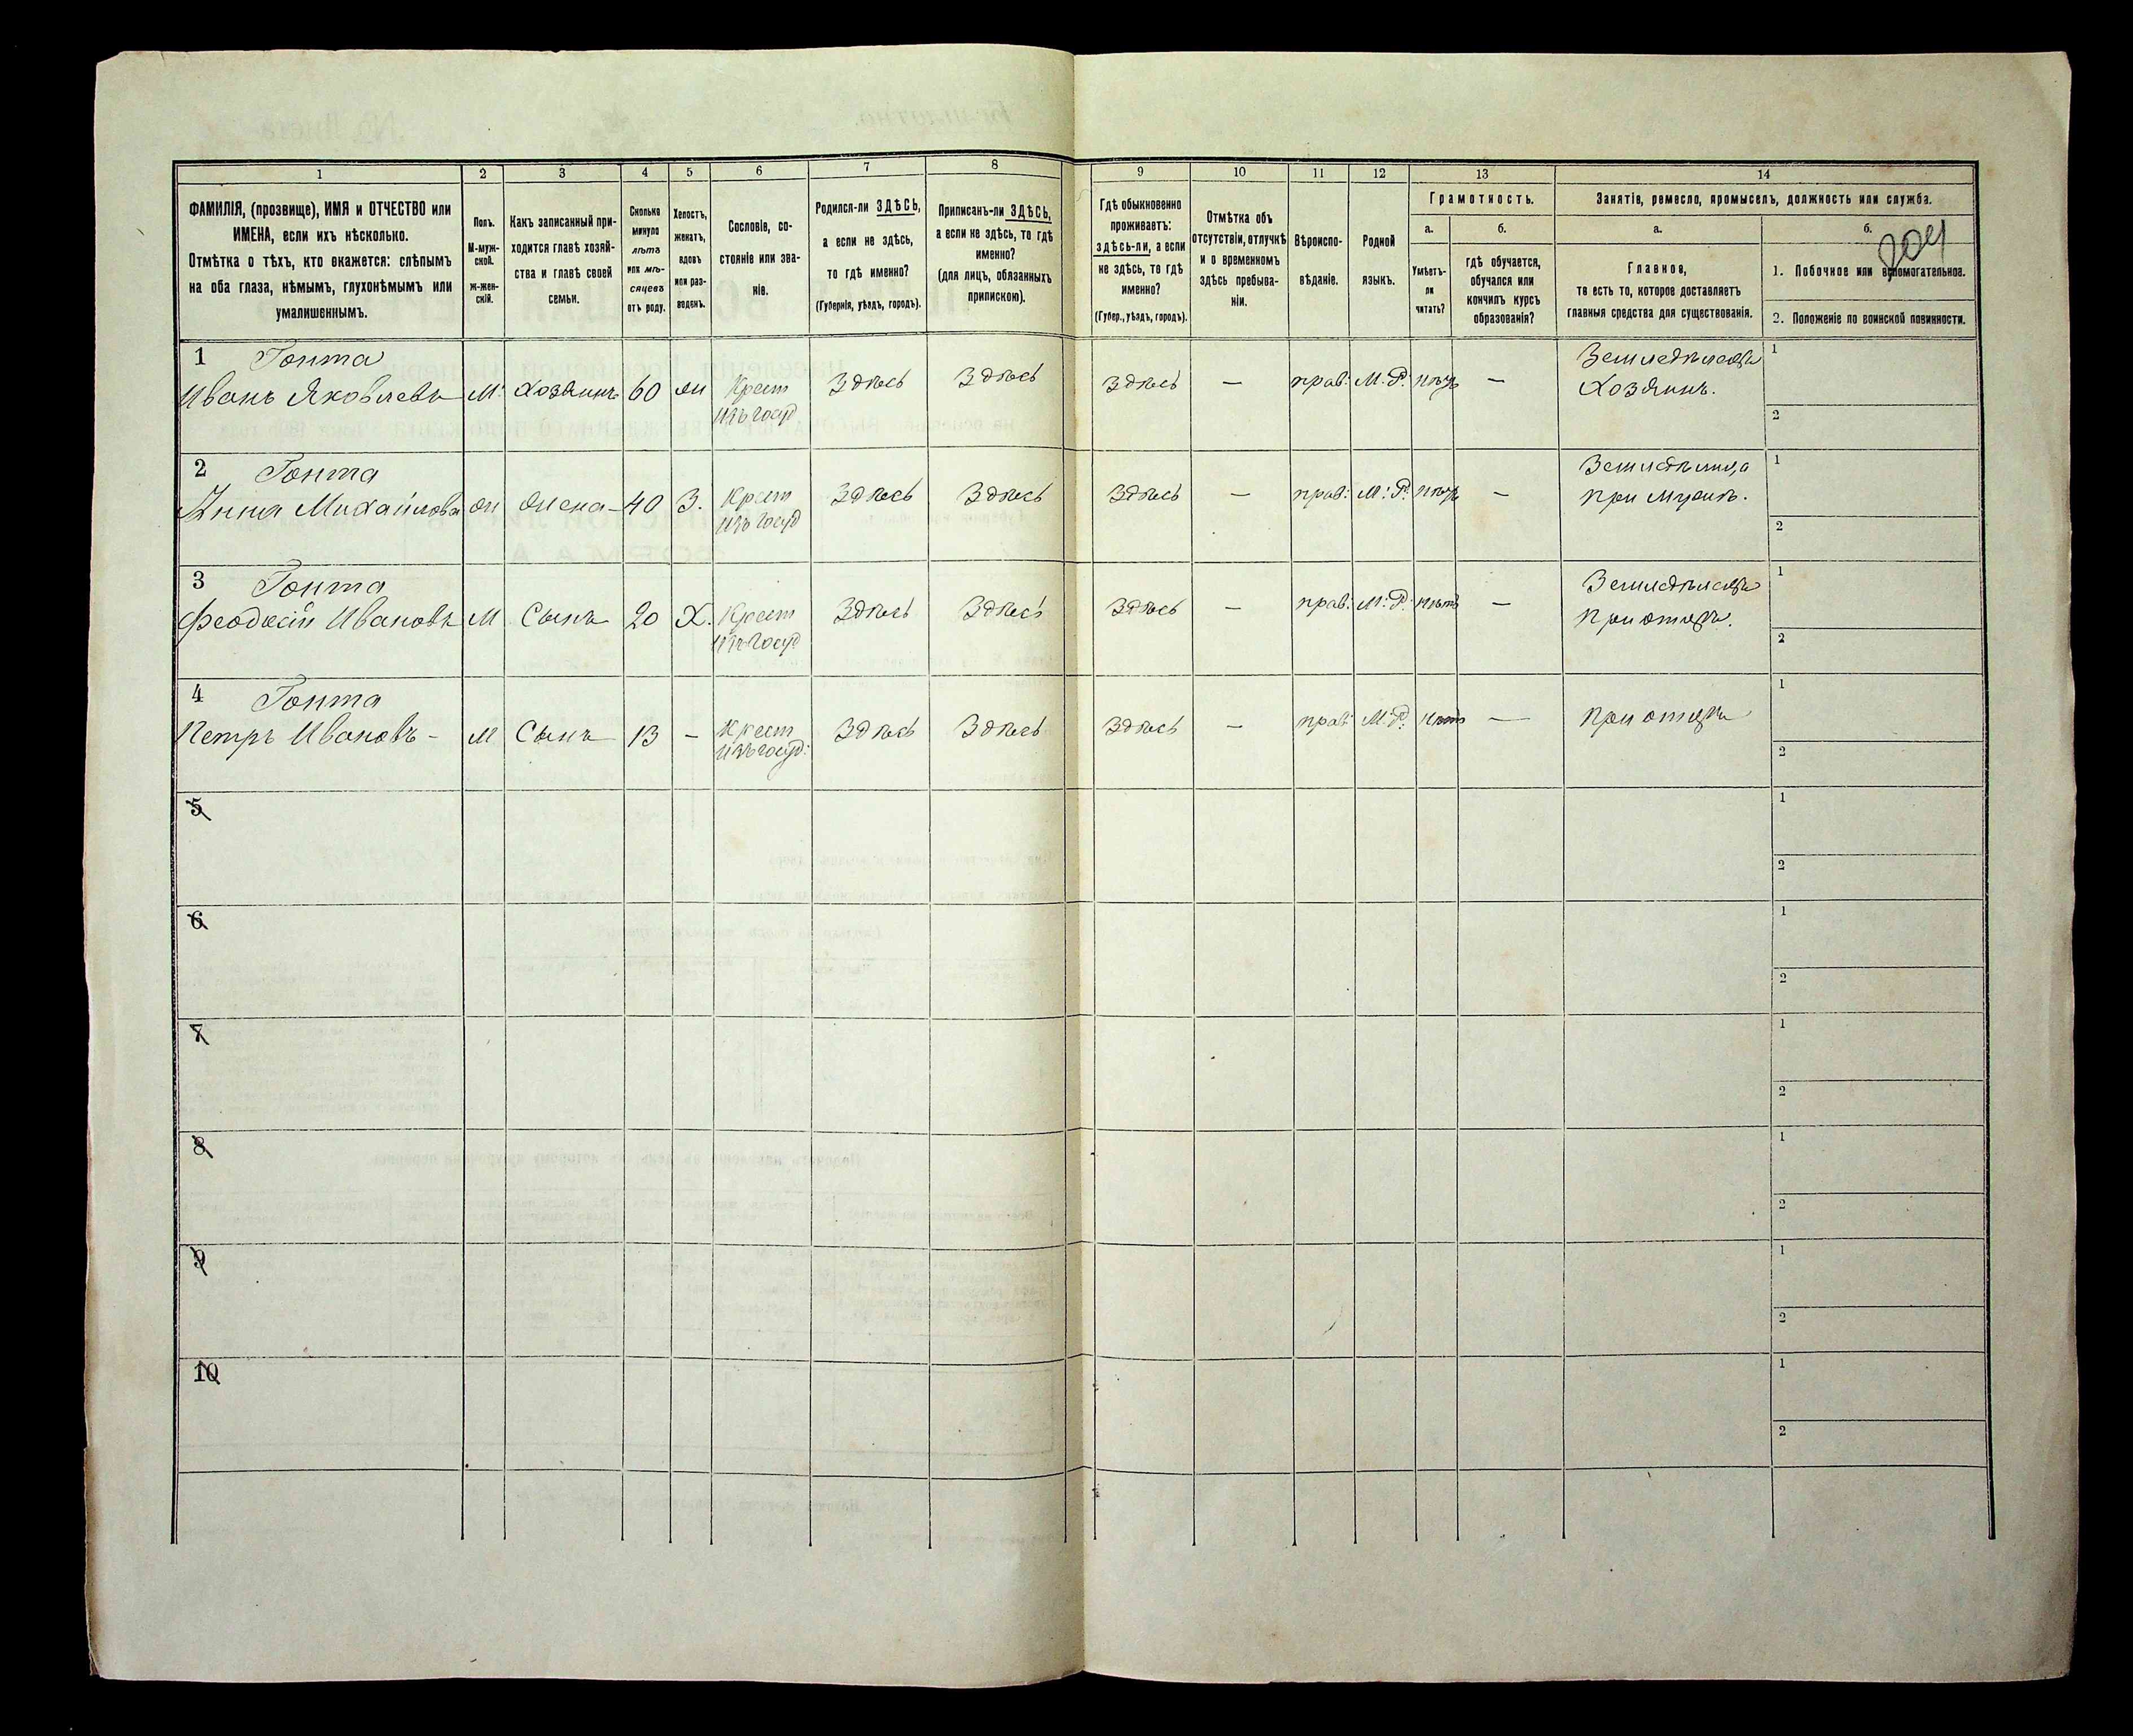 1 2 3 4 5 6 7 8 9 10 11 12 13 14
ФАМИЛІЯ, (прозвище), ИМЯ и ОТЧЕСТВО или
ИМЕНА, если ихъ нѣсколько.
Отмѣтка о тѣхъ, кто окажется: слѣпымъ
на оба глаза, нѣмымъ, глухонѣмымъ или
умалишеннымъ.
Полъ.
М-муж-
ской.
Ж-жен-
скій.
Какъ записанный при-
ходится главѣ хозяй-
ства и главѣ своей
семьи.
Сколько
минуло
лѣтъ
или мѣ-
сяцевъ
отъ роду.
Холостъ,
женатъ,
вдовъ
или раз-
веденъ.
Сословіе, со-
стояніе или зва-
ніе.
Родился-ли ЗДѢСЬ,
а если не здѣсь,
то гдѣ именно?
(Губернія, уѣздъ, городъ).
Приписанъ-ли ЗДѢСЬ,
а если не здѣсь, то гдѣ
именно?
(для лицъ, обязанныхъ
припискою).
Гдѣ обыкновенно
проживаетъ:
здѣсь-ли, а если
не здѣсь, то гдѣ
именно?
(Губер., уѣздъ, городъ).
Отмѣтка объ
отсутствіи, отлучкѣ
и о временномъ
здѣсь пребыва-
ніи.
Вѣроиспо-
вѣданіе.
Родной
языкъ.
Грамотность.
а.
Умѣетъ-
ли
читать?
б.
гдѣ обучается,
обучался или
кончилъ курсъ
образованія?
Занятіе, ремесло, промыселъ, должность или служба.
а.
Главное,
то есть то, которое доставляетъ
главныя средства для существованія.
б.
204
1. Побочное или вспомогательное.
2. Положеніе по воинской повинности.
1 Гонта Земледѣлецъ 1
Иванъ Яковлевъ М. Хозяинъ 60 ж Крест Здѣсь Здѣсь Здѣсь — прав: М.Р. нѣтъ — Хозяинъ.
изъ госуд 2
2 Гонта Земледѣлица 1
Анна Михайлова ж жена 40 З. Крест Здѣсь Здѣсь Здѣсь — прав: М.Р. нѣтъ — при мужѣ.
изъ госуд 2
3 Гонта Земледѣлецъ 1
Феодосій Ивановъ М Сынъ 20 Х. Крест Здѣсь Здѣсь Здѣсь — прав: М.Р. нѣтъ — При отцѣ.
изъ госуд 2
4 Гонта 1
Петръ Ивановъ - М Сынъ 13 — Крест Здѣсь Здѣсь Здѣсь — прав М.Р. нѣтъ — При отцѣ
изъ госуд: 2
5 1
2
6 1
2
7 1
2
8 1
2
9 1
2
10 1
2